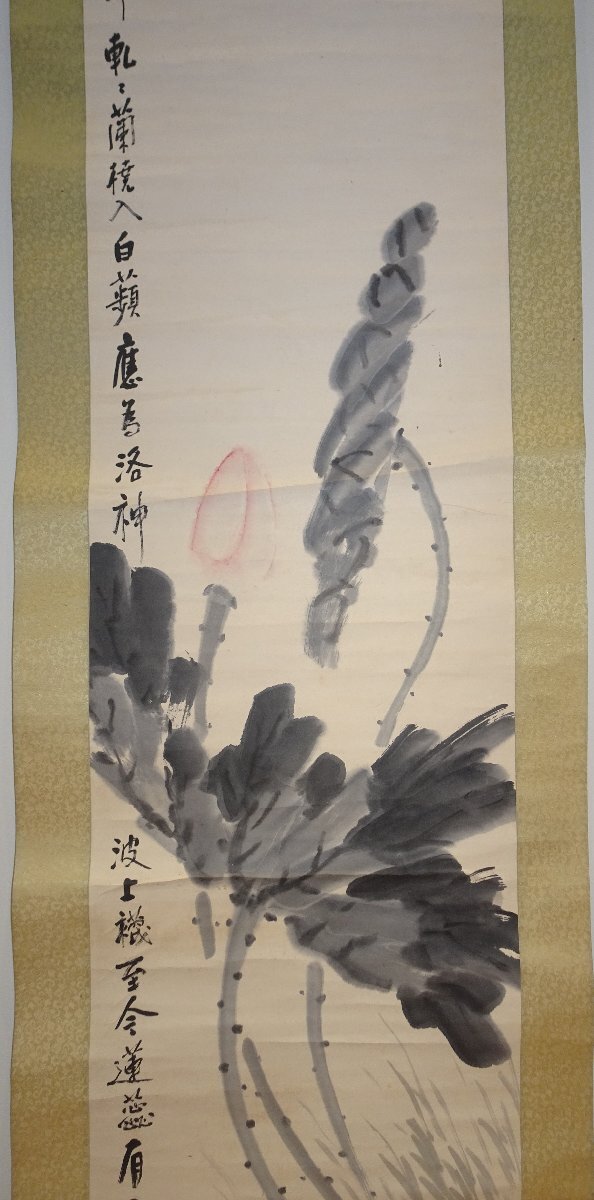 軋〻蘭橈入白蘋應爲洛神
波上襪至今蓮蕊有